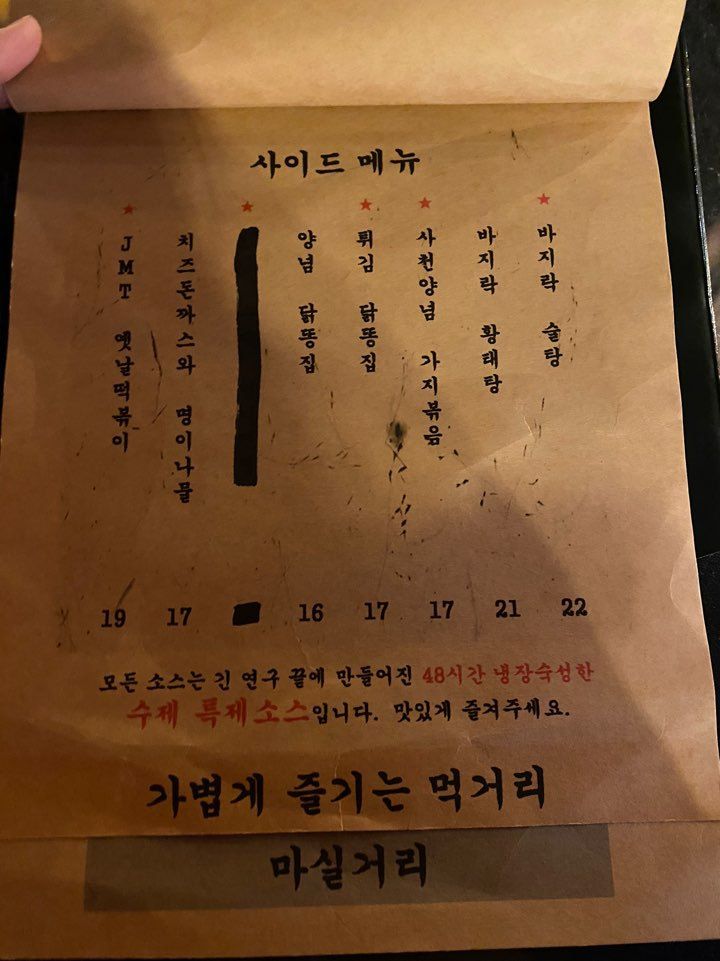 사이드 메뉴
JMT 옛날떡볶이
치즈돈까스와 명이나물
양념 닭똥집
튀김 닭똥집
사천양념 가지볶음
바지락 황태탕
바지락 술탕
19 17 16 17 17 21 22
모든 소스는 긴 연구 끝에 만들어진 48시간 냉장숙성한
수제 특제소스입니다. 맛있게 즐겨주세요.
가볍게 즐기는 먹거리
마실거리